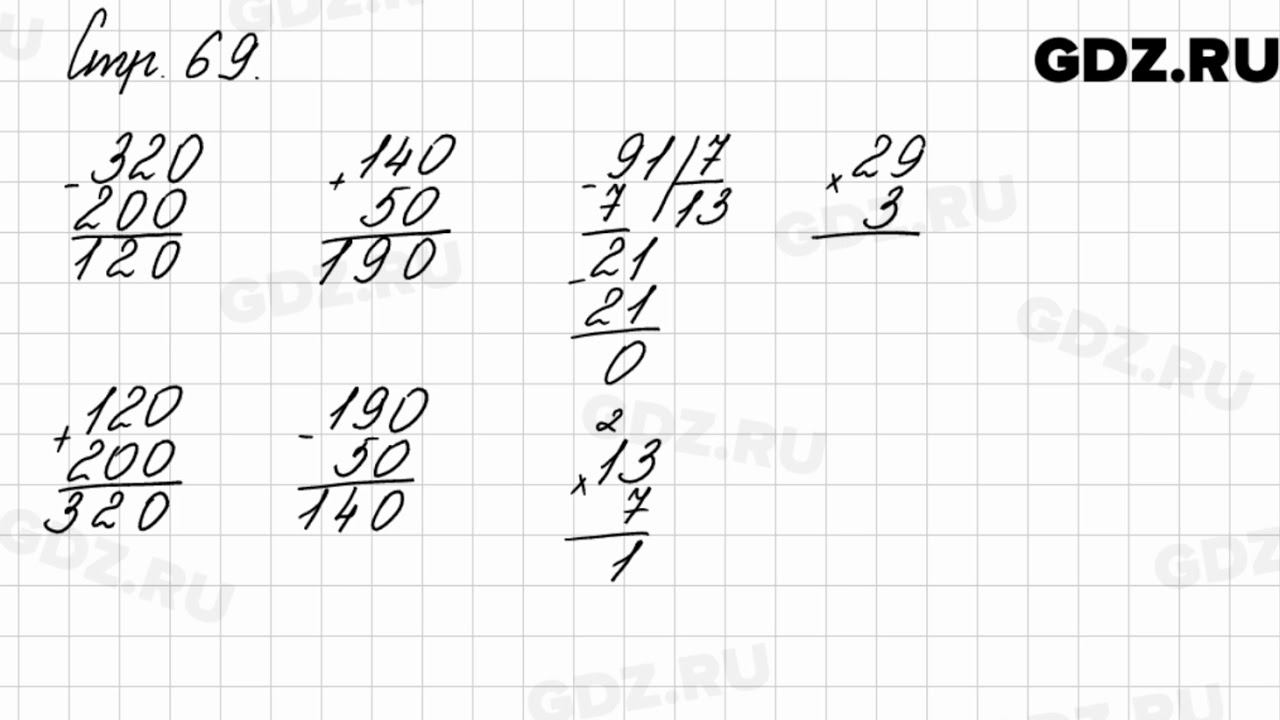 Стр. 69.
GDZ.RU
- 320
200
120
+ 140
50
190
- 91 | 7
7 | 13
- 21
21
0
× 29
3
+ 120
200
320
- 190
50
140
2
× 13
7
1
GDZ.RU
GDZ.RU
GDZ.RU
GDZ.RU
GDZ.RU
GDZ.RU
GDZ.RU